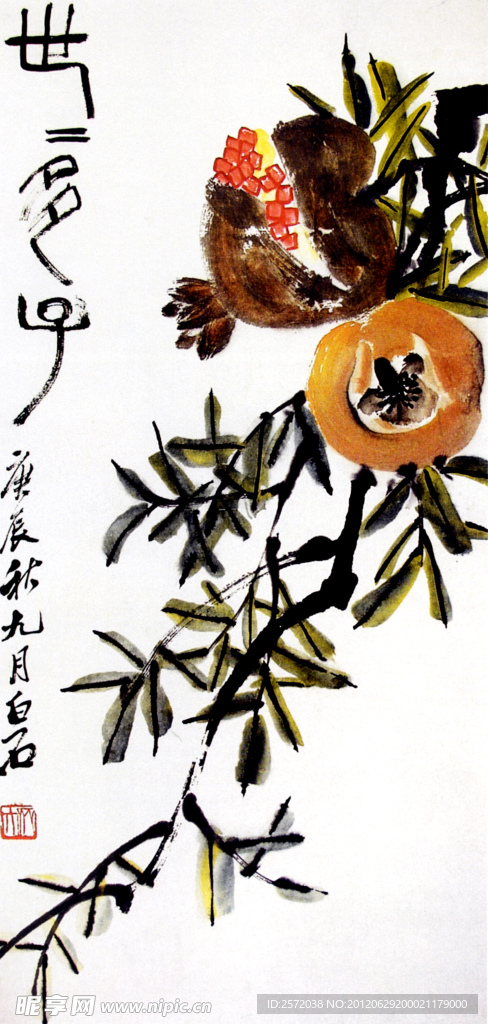 世〻多子
庚辰秋九月白石
昵享网 www.nipic.cn
ID:2572038 NO:20120629200021179000